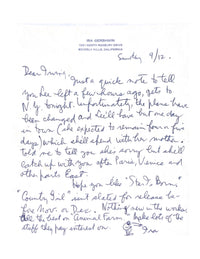 IRA GERSHWIN
1021 NORTH ROXBURY DRIVE
BEVERLY HILLS, CALIFORNIA
Sunday 9/12.
Dear Irving,
Just a quick note to
tell you Lee left a few hours ago, gets to
N.Y. tonight. Unfortunately, the plans have
been changed and she'll have but one day
in town (she expected to remain four or five
days) which she'll spend with her mother.
told me to tell you she's sorry but she'll
catch up with you after Paris, Venice and
other parts East.
Hope you like "Star Is Born".
"Country Girl" isn't slated for release be-
fore Nov. or Dec. Nothing new in the works.
All the best on Animal Farm. Make lots of the
stuff they pay interest on.
Ira